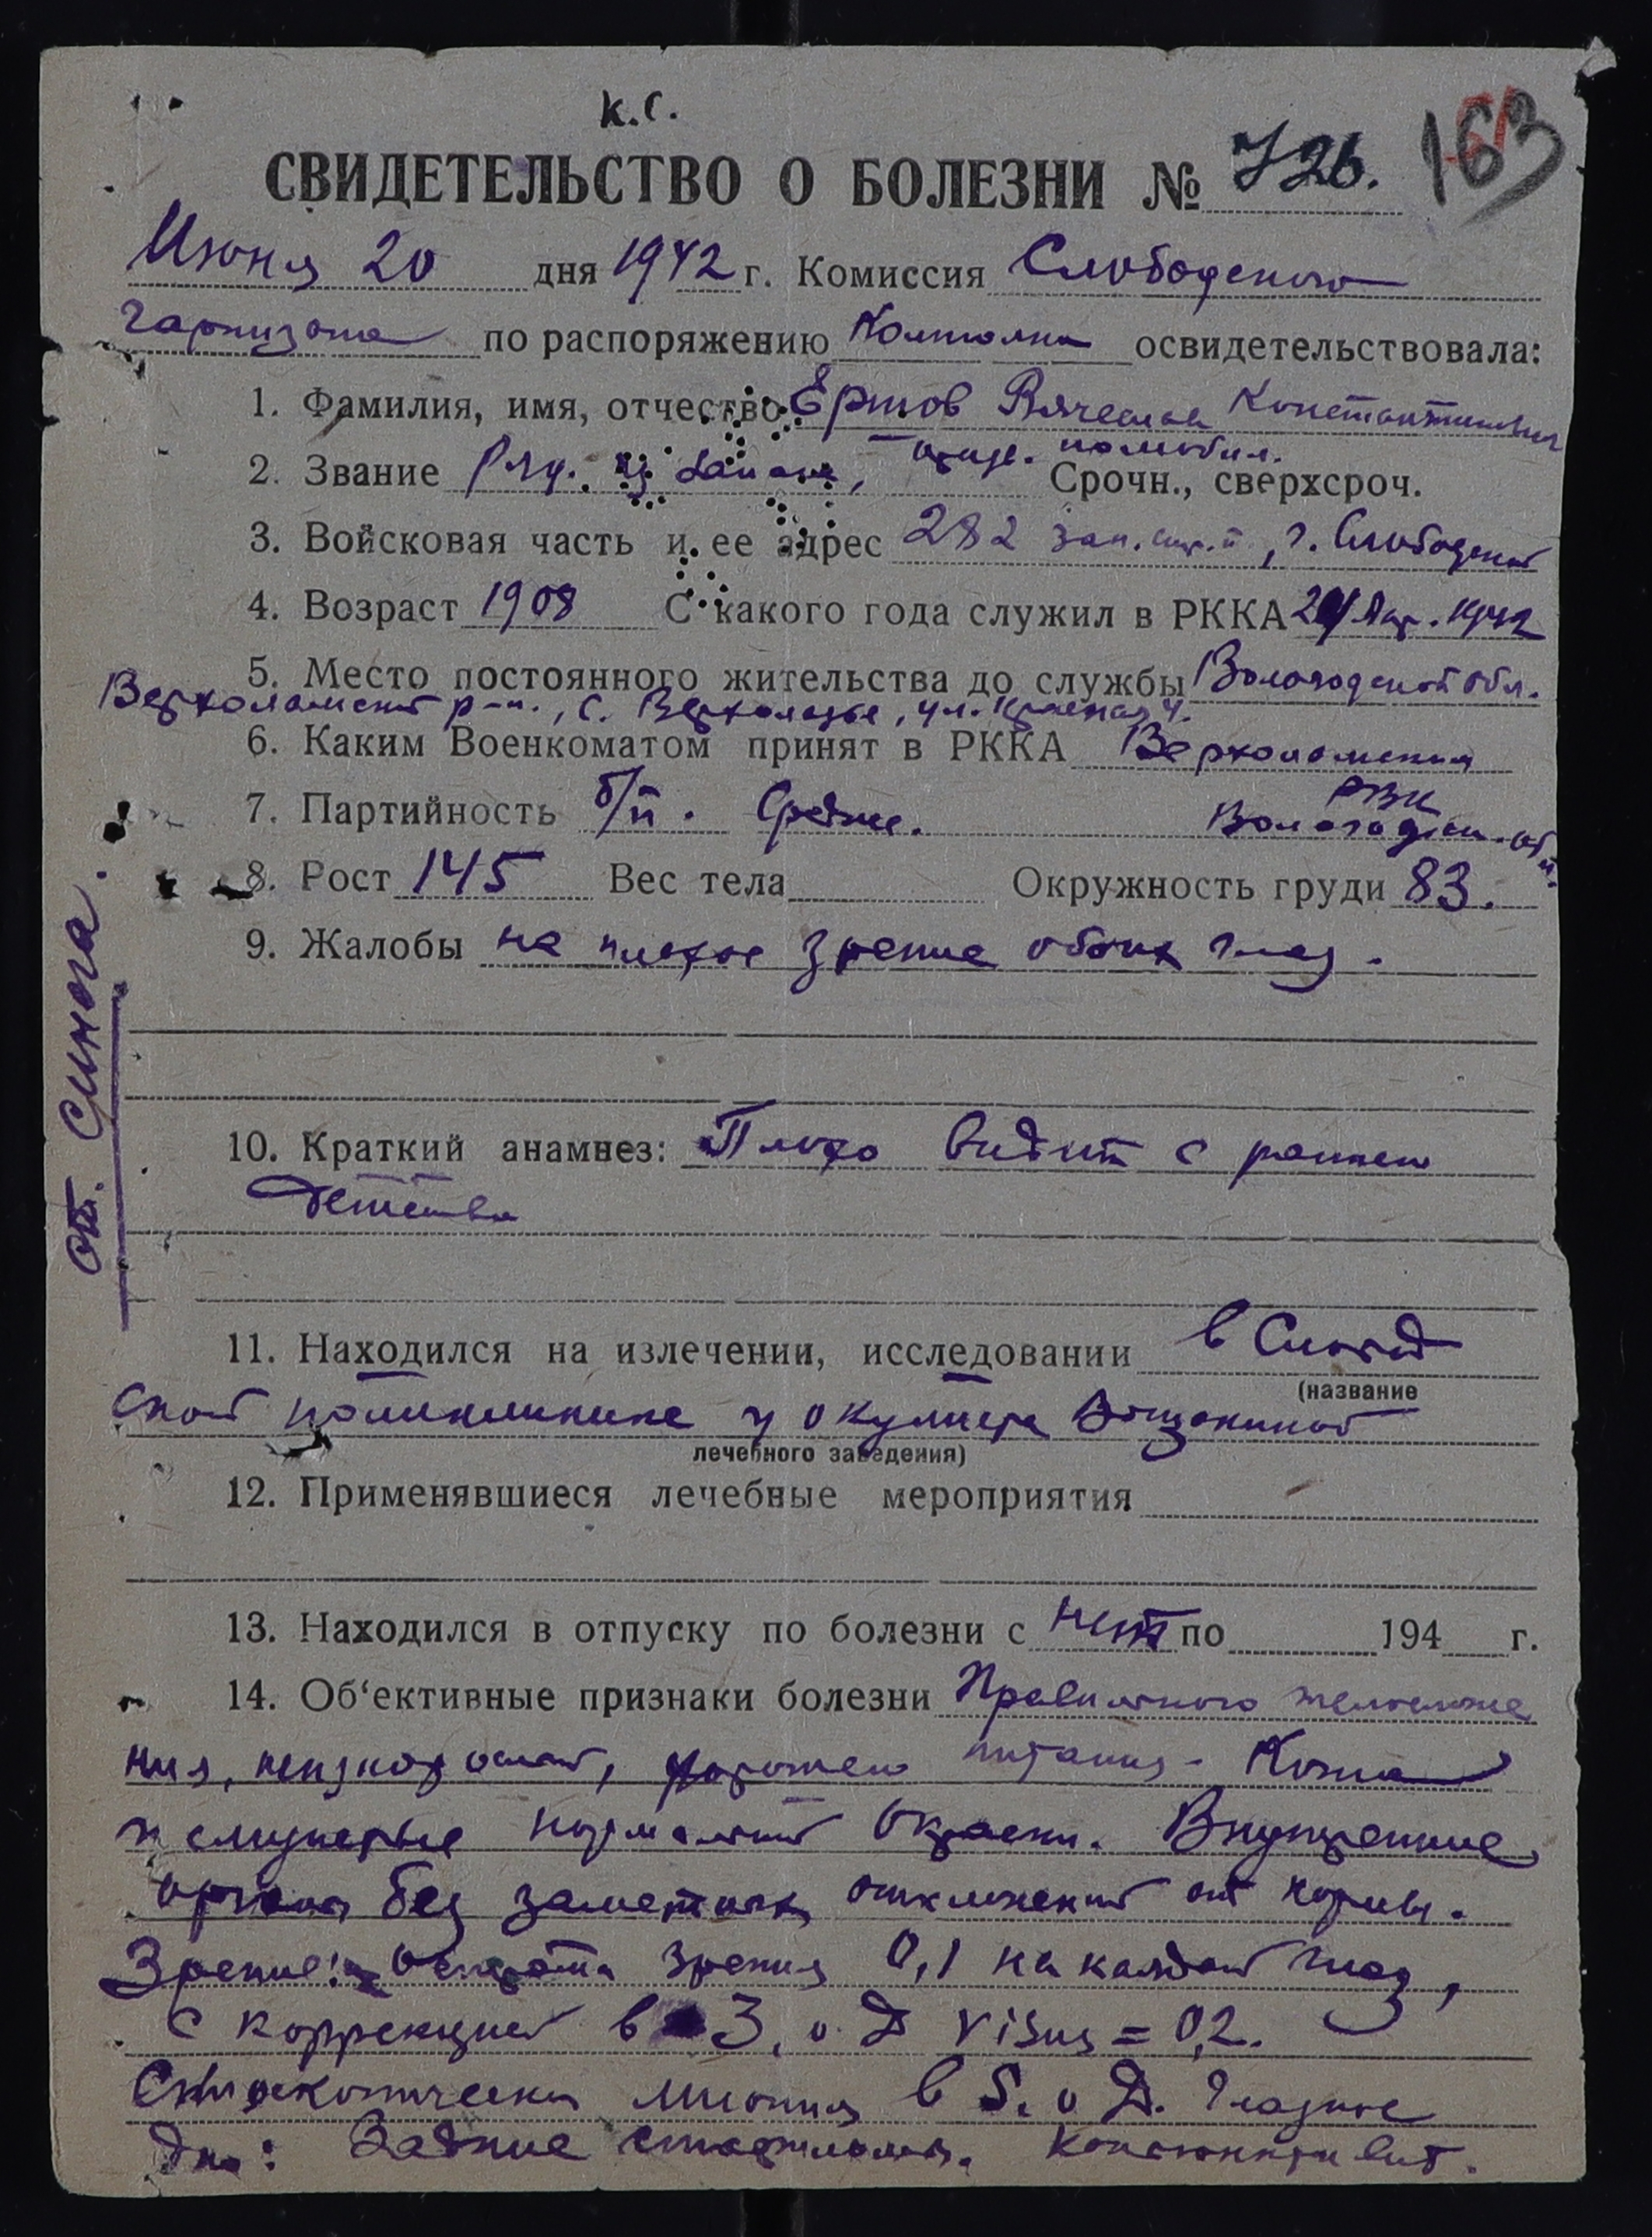 к.с.
163
СВИДЕТЕЛЬСТВО О БОЛЕЗНИ № 726.
Июня 20 дня 1942 г. Комиссия Слободского
гарнизона по распоряжению освидетельствовала:
1. Фамилия, имя, отчество Ершов Вячеслав Константинович
2. Звание Ряд. из запаса, призв. по мобил. Срочн., сверхсроч.
3. Войсковая часть и ее адрес 282 зап. стр. п., г. Слободской
4. Возраст 1908 С какого года служил в РККА 1942
5. Место постоянного жительства до службы Вологодской обл.
р-н., с. ул. Красная 4.
6. Каким Военкоматом принят в РККА
РВК
7. Партийность б/п. Средне. Вологодск. обл.
8. Рост 145 Вес тела Окружность груди 83.
9. Жалобы на плохое зрение обоих глаз.
10. Краткий анамнез: Плохо видит с раннего
детства
11. Находился на излечении, исследовании в Слобод
(название
ской поликлинике у окулиста
лечебного заведения)
12. Применявшиеся лечебные мероприятия
13. Находился в отпуску по болезни с нет по 194 г.
14. Об‘ективные признаки болезни Правильного телосложе
ния, низкорослый, хорошего питания. Кожа
и слизистые нормальной окраски. Внутренние
органы без заметных отклонений от нормы.
Зрение: острота зрения 0,1 на каждый глаз,
с коррекцией в 3,0 Д visus = 0,2.
Скиаскопически миопия в 5,0 Д. Глазное
дно: Задние стафиломы. Конъюнктивит.
от. Синога.